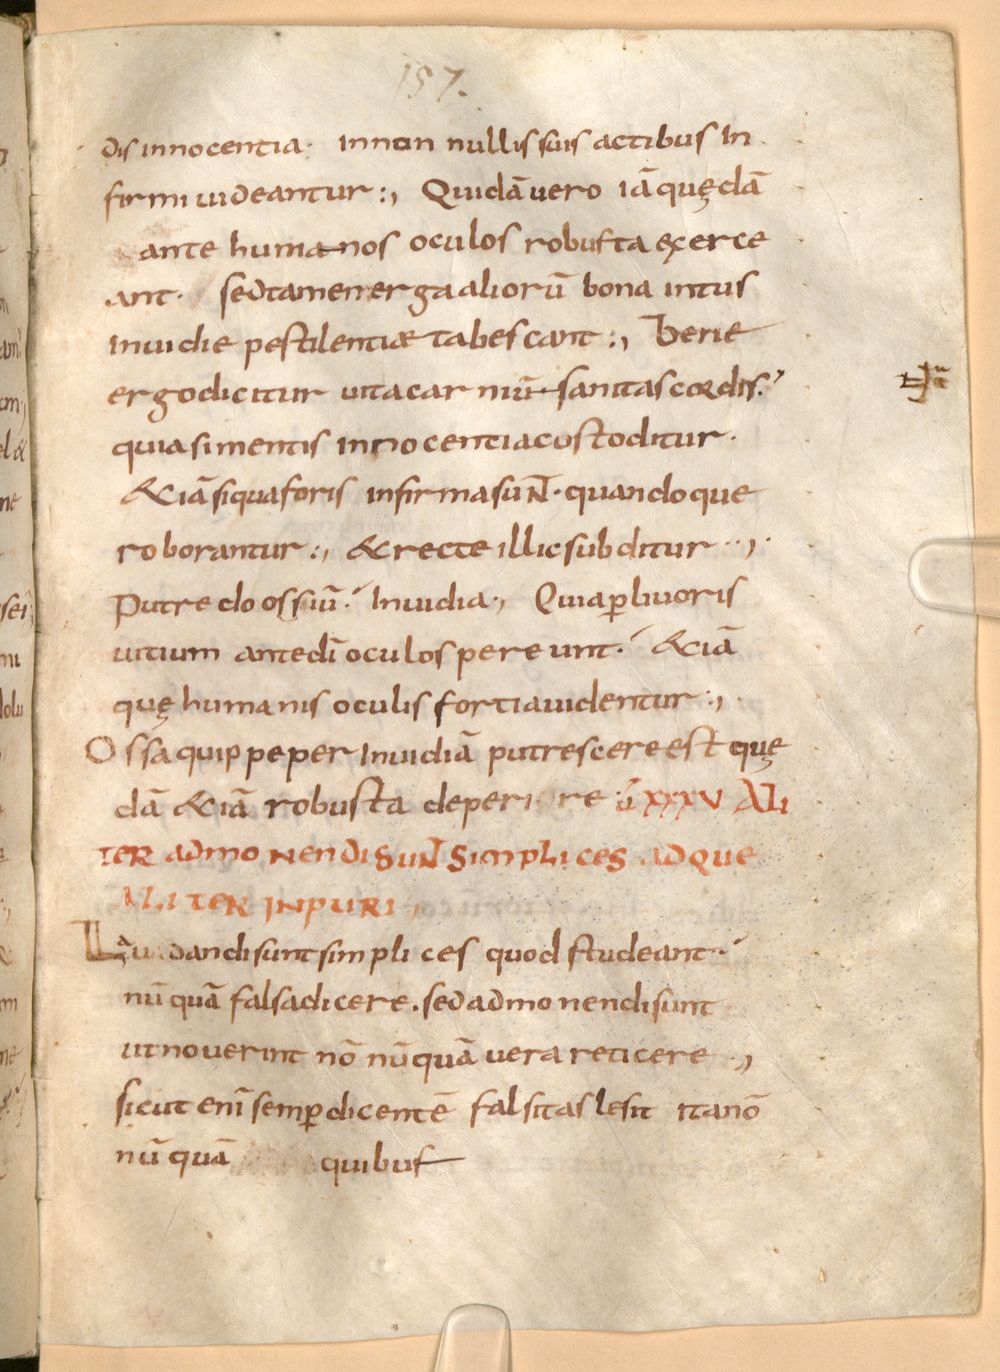 157.
dis innocentia· in non nullis suis actibus In
firmi uideantur :, Quidā uero iā quędā
ante humanos oculos robusta exerce
ant· sed tamen erga aliorū bona intus
inuidie pestilentiæ tabescant :, Bene
ergo dicitur uita carniū sanitas cordis.
quia si mentis innocentia custoditur·
&iā si qua foris infirma sunt· quandoque
roborantur :, & recte illic subditur ··,
Putredo ossiū. Inuidia·, Quia ꝑ liuoris
uitium ante dī oculos pereunt· &iā
quę humanis oculis fortia uidentur :,
Ossa quippe per Inuidiā putrescere est quę
dā &iā robusta deperire : XXXV ALI
TER admonendi SUNT Simplices adque
ALITER INPURI,
Laudandi sunt simplices quod studeant·
nū quā falsa dicere. sed admonendi sunt
ut nouerint nō nūquā uera reticere ·,
sicut enī semꝑ dicentē falsitas lesit ita nō
nū quā quibus